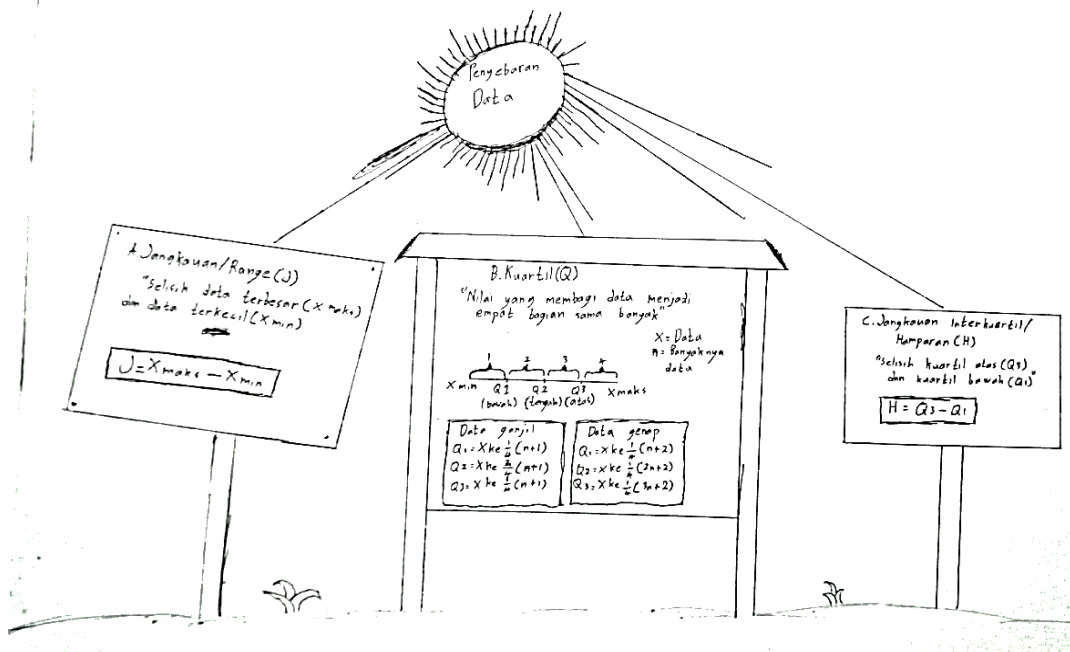 Penyebaran
Data
A. Jangkauan/Range (J)
"Selisih data terbesar (X maks)
dan data terkecil (X min)
J = X maks - X min
B. Kuartil (Q)
"Nilai yang membagi data menjadi
empat bagian sama banyak"
X = Data
n = Banyaknya
data
1 2 3 4
X min Q1 Q2 Q3 X maks
(bawah) (tengah) (atas)
Data ganjil
Q1 = X ke 1/4 (n+1)
Q2 = X ke 2/4 (n+1)
Q3 = X ke (n+1)
Data genap
Q1 = X ke 1/4 (n+2)
Q2 = X ke 1/4 (2n+2)
Q3 = X ke 1/4 (3n+2)
C. Jangkauan Interkuartil/
Hamparan (H)
"Selisih kuartil atas (Q3)
dan kuartil bawah (Q1)"
H = Q3 - Q1